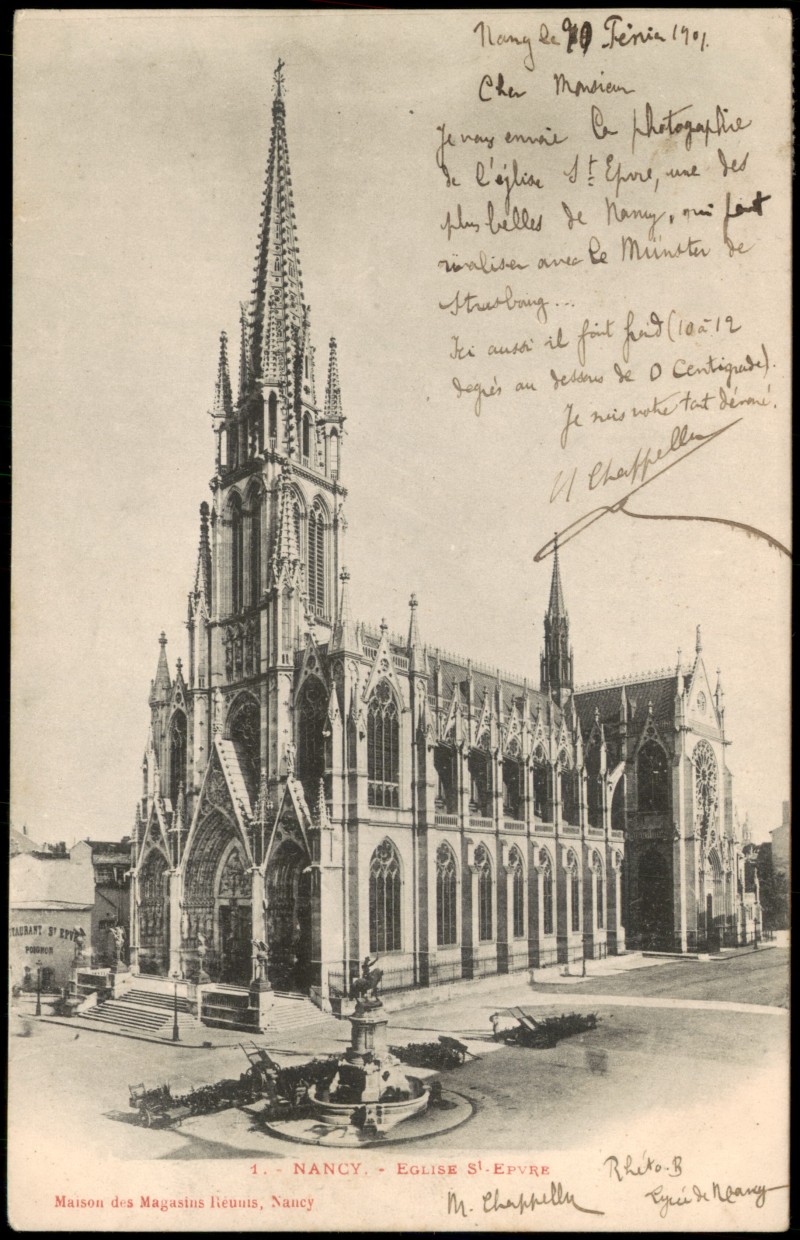 Nancy le Février 1901.
Cher Monsieur
Je vous envoie la photographie
de l'église St Epvre, une des
plus belles de Nancy, qui peut
rivaliser avec le Münster de
Strasbourg...
Ici aussi il fait froid (10 à 12
degrés au dessous de 0 Centigrade).
Je suis votre tout dévoué.
Chappelle
RESTAURANT St EPVRE
POIGNON
1. - NANCY. - EGLISE St-EPVRE
Maison des Magasins Réunis, Nancy
M. Chappelle
Rhéto-B
Lycée de Nancy